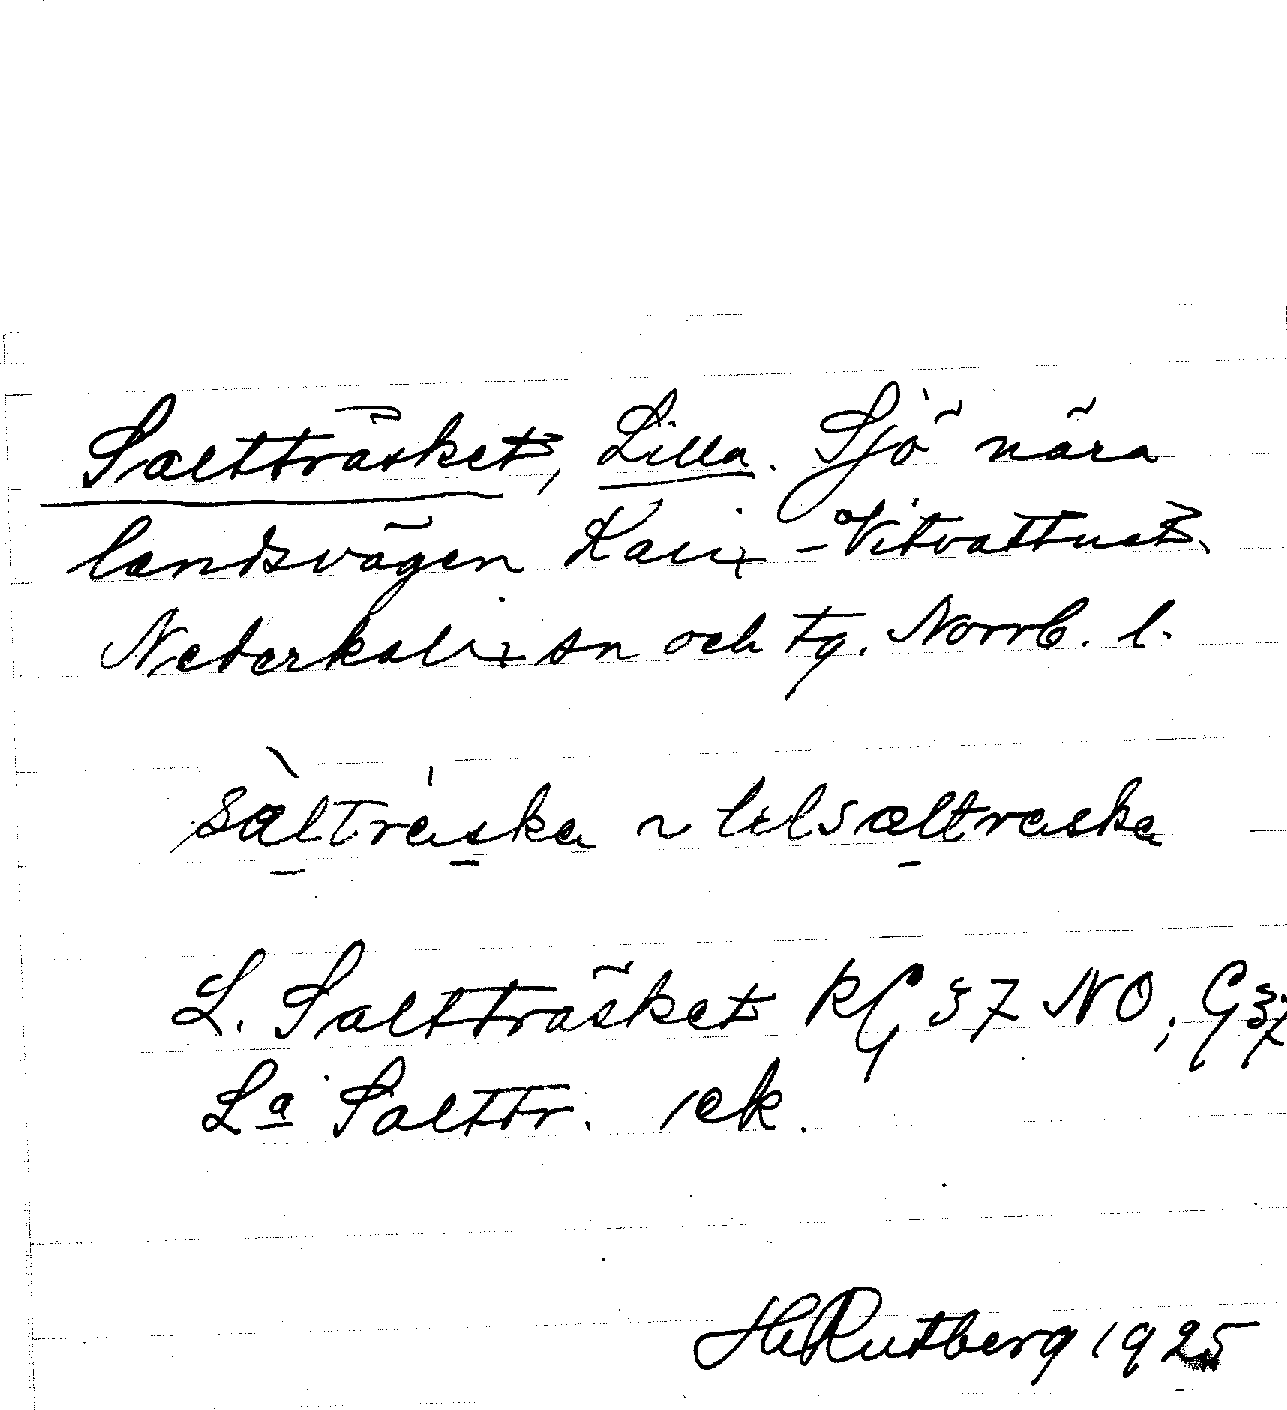 Saltträsket, Lilla. Sjö nära
landsvägen Kalix – Vitvattnet,
Nederkalix sn och tg. Norrb. l.
sàltrȧska ~ lılsaltraska
L. Saltträsket KG 37 NO, G 37
La Salttr. ek.
H Rutberg 1925